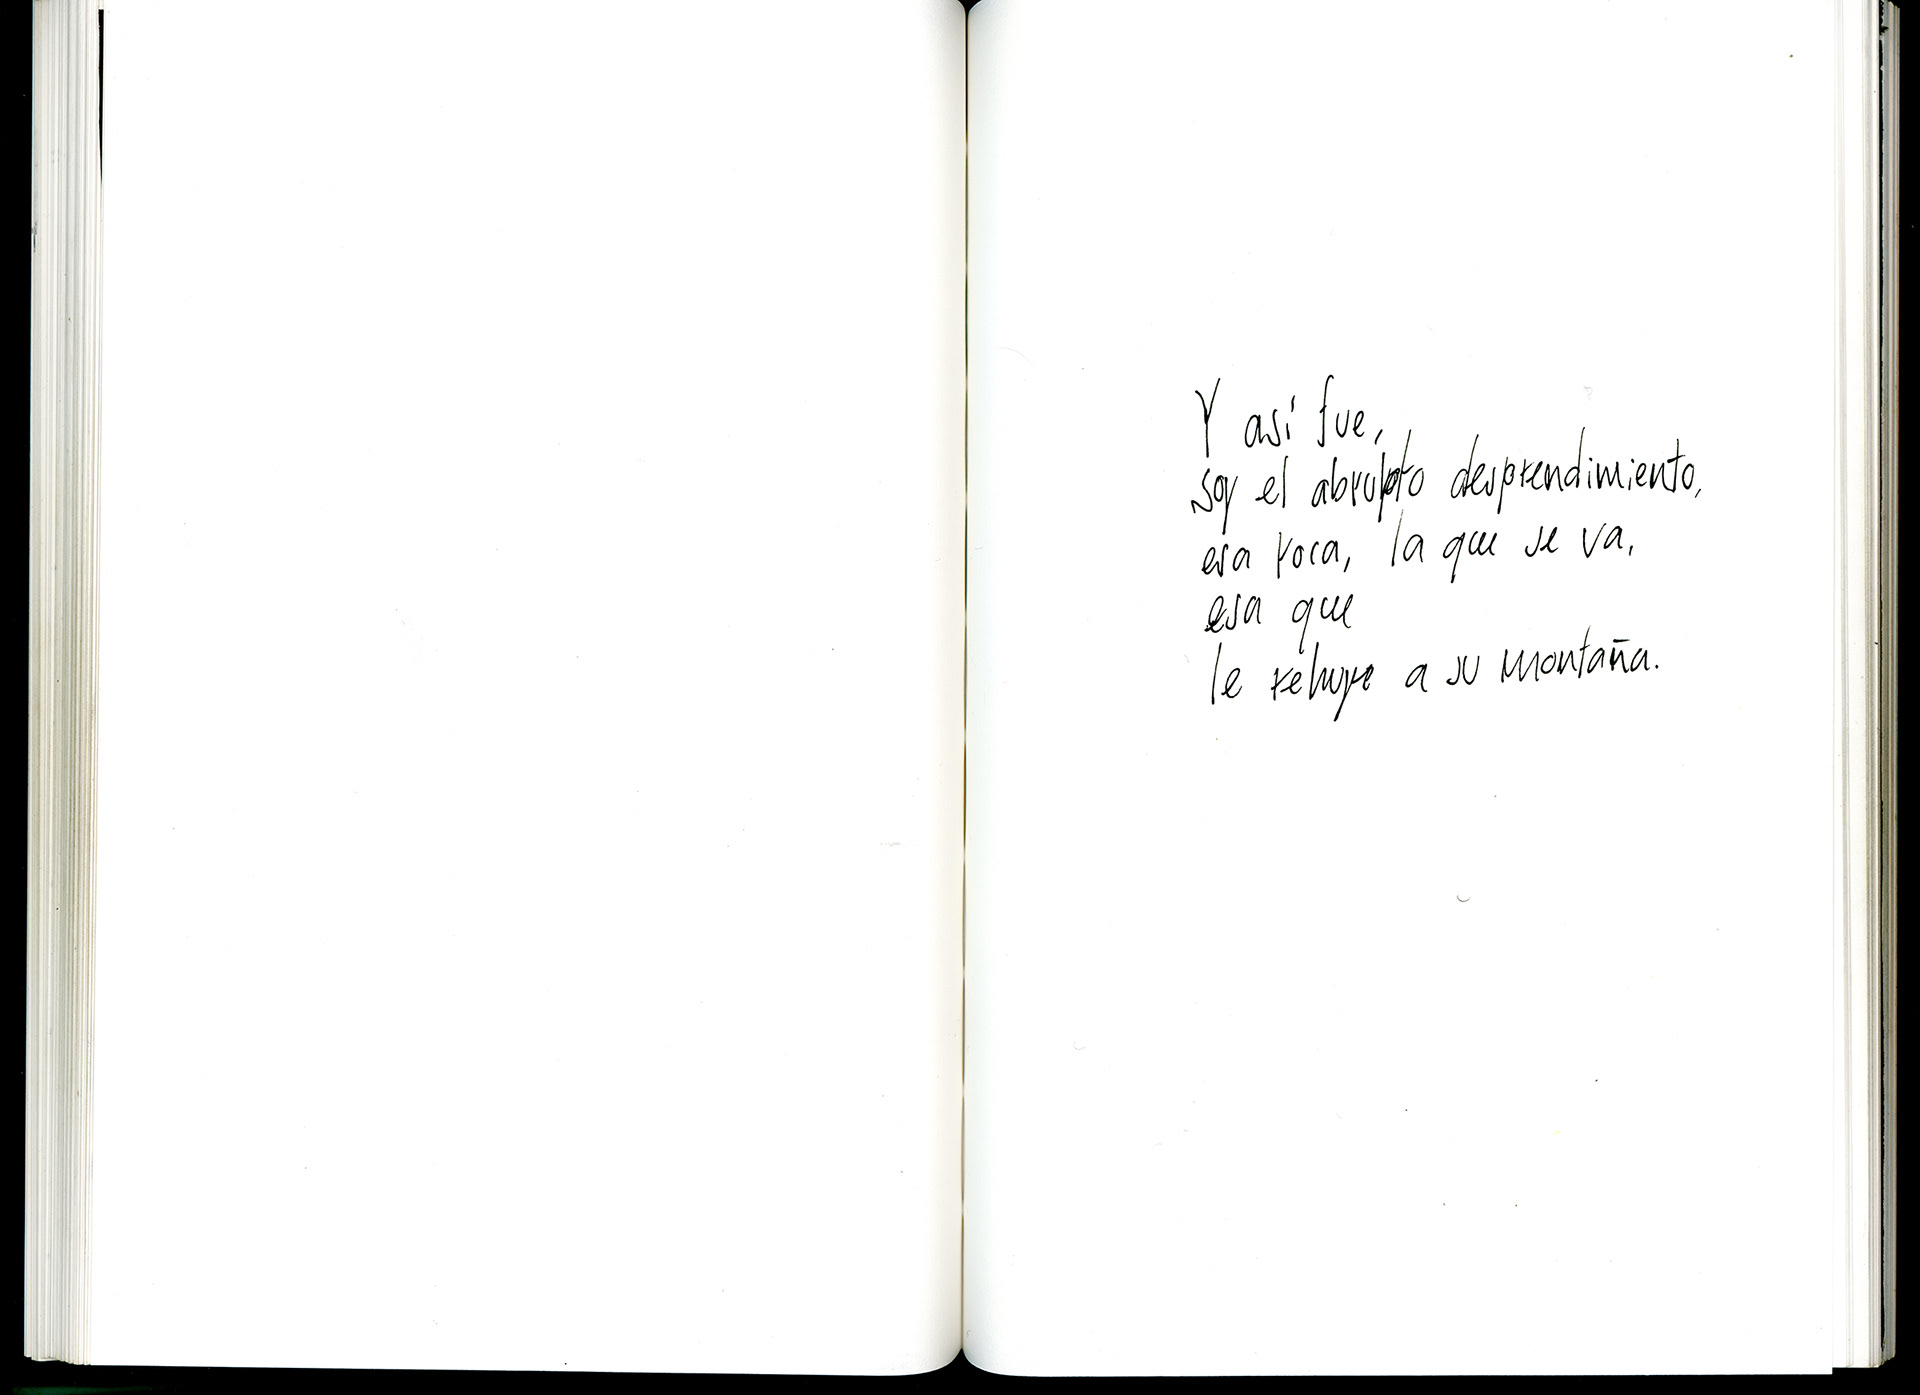 Y así fue,
soy el abrupto desprendimiento,
esa roca, la que se va,
esa que
le rehuye a su montaña.